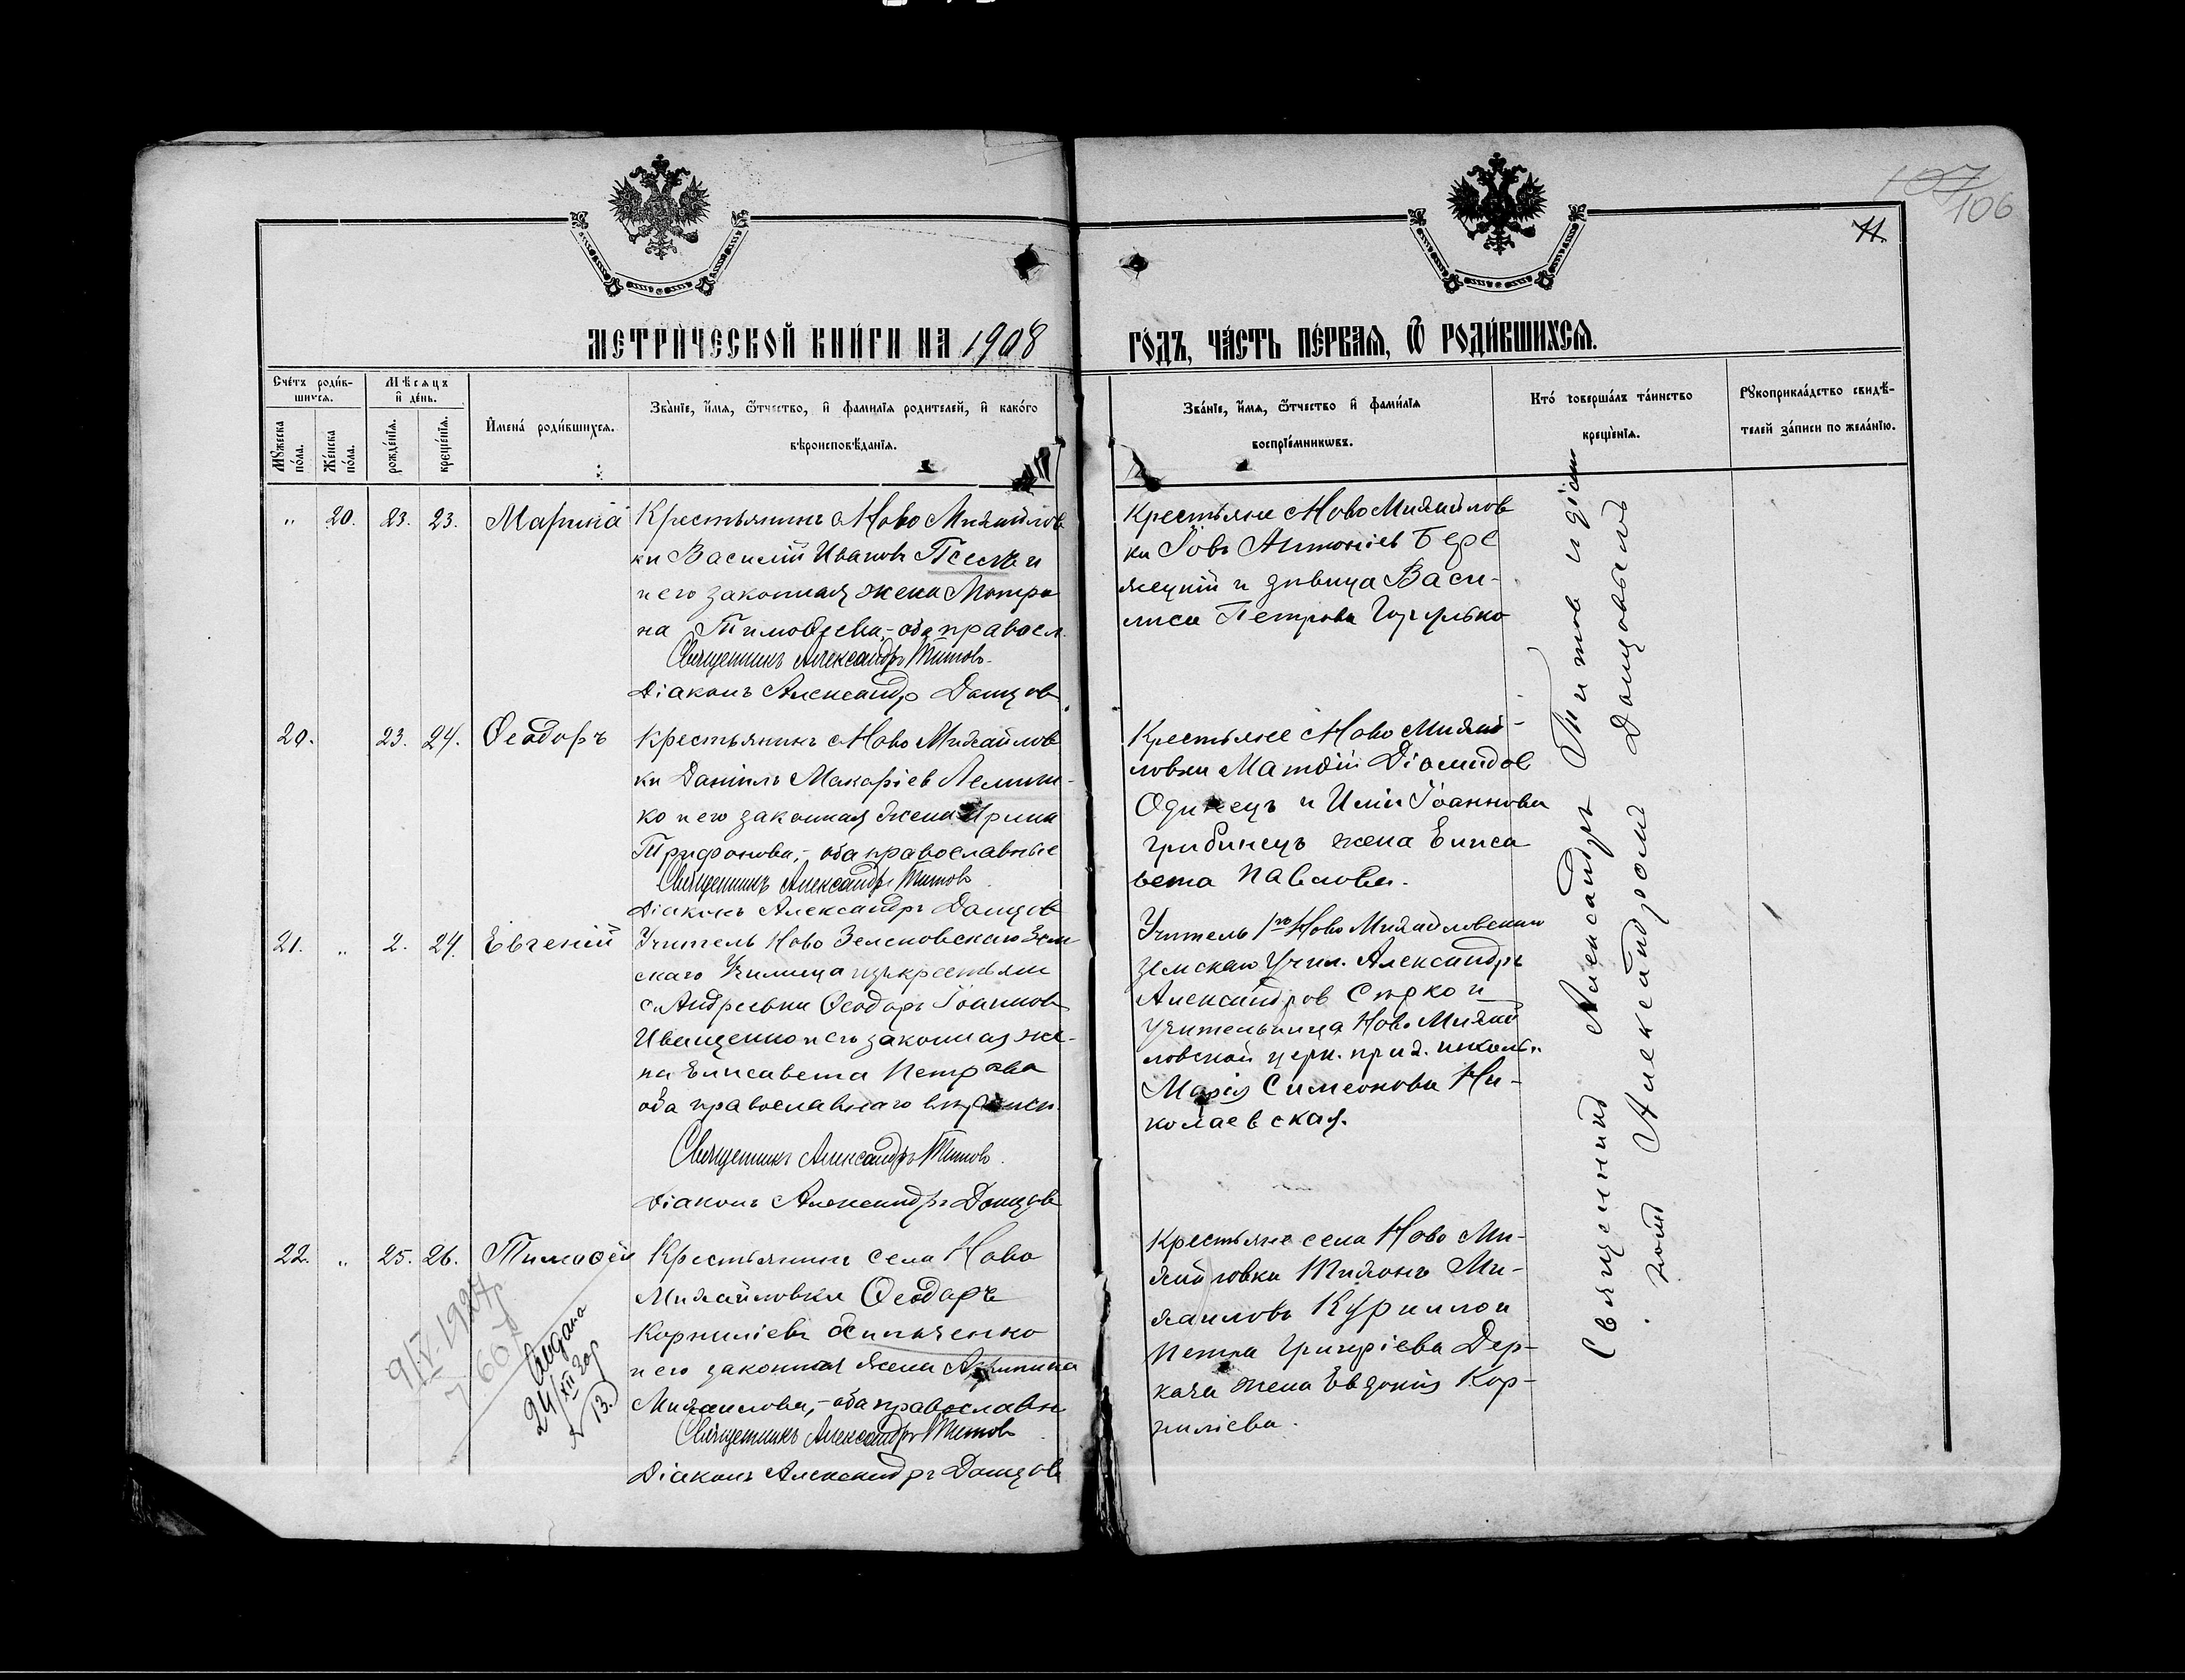 107
106
11.
МЕТРИ́ЧЕСКОЙ КНИ́ГИ НА 1908
ГО́ДЪ, ЧА́СТЬ ПЕ́РВАЯ, Ѿ РОДИ́ВШИХСЯ.
Сче́тъ роди́в-
шихся.
Мѣ́сяцъ
и де́нь.
Му́жеска
по́ла.
Же́нска
по́ла.
рожде́нїя.
креще́нїя.
И҆мена́ роди́вшихся.
Зва́нїе, и҆́мя, ѻ҆́тчество, и҆ фами́лїя роди́телей, и҆ како́го
вѣроисповѣ́данїя.
Зва́нїе, и҆́мя, ѻ҆́тчество и҆ фами́лїя
воспрїе́мниковъ.
Кто́ соверша́лъ та́инство
креще́нїя.
Рукоприкла́дство свидѣ́-
телей за́писи по жела́нїю.
" 20. 23. 23. Марина
Крестьянинъ с Ново Михайлов
ки Василій Ивановъ
и его законная жена Матро
на Тимоѳеева,- оба правосл.
Священникъ Александръ Титовъ.
Діаконъ Александръ Донцовъ
Крестьяне с Ново Михайлов
ки Іовъ Антоніев Бере
жецкій и дѣвица Васи-
лиса Петрова
20. 23. 24. Ѳеодоръ
Крестьянинъ с Ново Михайлов
ки Даніилъ Макаріев Лемеш-
ко и его законная жена Ирина
Трифонова,- оба православные
Священникъ Александръ Титовъ
Діаконъ Александръ Донцовъ
Крестьяне с Ново Михай-
ловки Матѳій Діомидов
Одинецъ и Иліи Іоаннова
Грибинецъ жена Елиса
вета Павлова.
21. " 2. 24. Евгеній
Учитель Ново Зеленовскаго Зем
скаго Училища изъ крестьян
с. Андреевки Ѳеодоръ Іоаннов
Иващенко и его законная же-
на Елисавета Петрова
оба православнаго вѣроисп.
Священникъ Александръ Титовъ.
Діаконъ Александръ Донцовъ
Учитель 1го Ново Михайловскаго
земскаго Учил. Александръ
Александров Сѣрко и
учительница Ново Михай
ловской церк. прих. школы
Марія Симеонова Ни-
колаевская.
22. " 25. 26. Тимоѳей
Крестьянинъ села Ново
Михайловки Ѳеодоръ
Корниліевъ Хильченко
и его законная жена Агрипина
Михаилова,- оба православн
Священникъ Александръ Титовъ
Діаконъ Александръ Донцовъ
Крестьяне села Ново Ми-
хайловки Тихонъ Ми-
хаиловъ Курилло и
Петра Григоріева Дер-
кача жена Евдокія Кор-
ниліева.
9/IV-1927
24/XII
№ 13.
Священникъ Александръ Титов и діа
кономъ Александромъ Донцовымъ